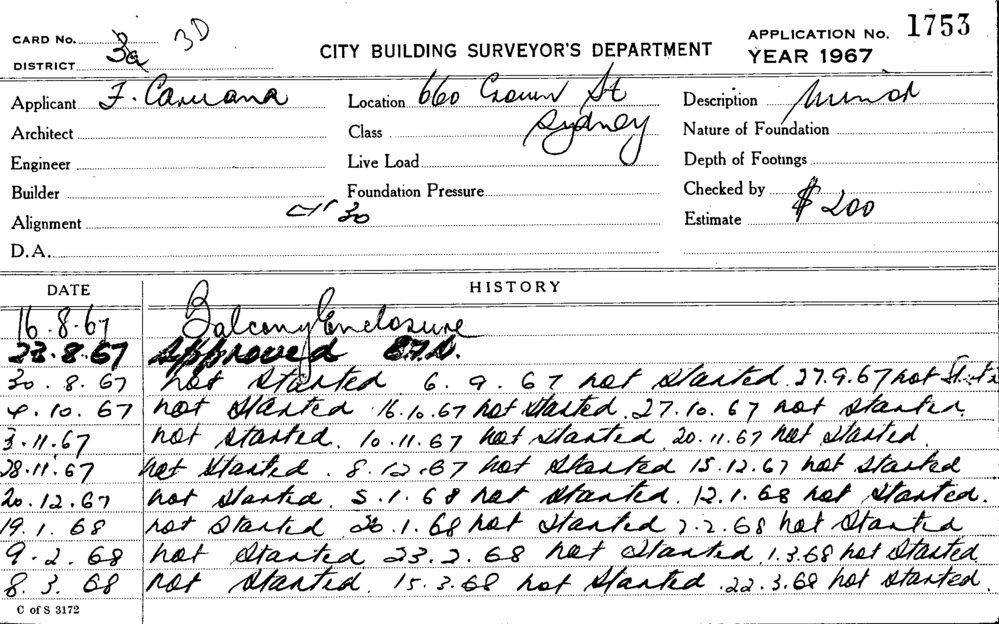 CARD No. 3D
DISTRICT 3a
CITY BUILDING SURVEYOR'S DEPARTMENT
APPLICATION No. 1753
YEAR 1967
Applicant F. Caruana
Location 660 Crown St Sydney
Description Minor
Architect
Class
Nature of Foundation
Engineer
Live Load
Depth of Footings
Builder
Foundation Pressure
Checked by
Alignment
30
Estimate $200
D.A.
DATE HISTORY
16.8.67 Balcony Enclosure
22.8.67 Approved
30.8.67 not started 6.9.67 not started 27.9.67 not
4.10.67 not started 16.10.67 not started 27.10.67 not started
3.11.67 not started. 10.11.67 not started 20.11.67 not started.
28.11.67 not started. 8.12.67 not started 15.12.67 not started
20.12.67 not started. 5.1.68 not started. 12.1.68 not started.
19.1.68 not started 26.1.68 not started 2.2.68 not started
9.2.68 not started 23.2.68 not started 1.3.68 not started
8.3.68 not started 15.3.68 not started 22.3.68 not started
C of S 3172